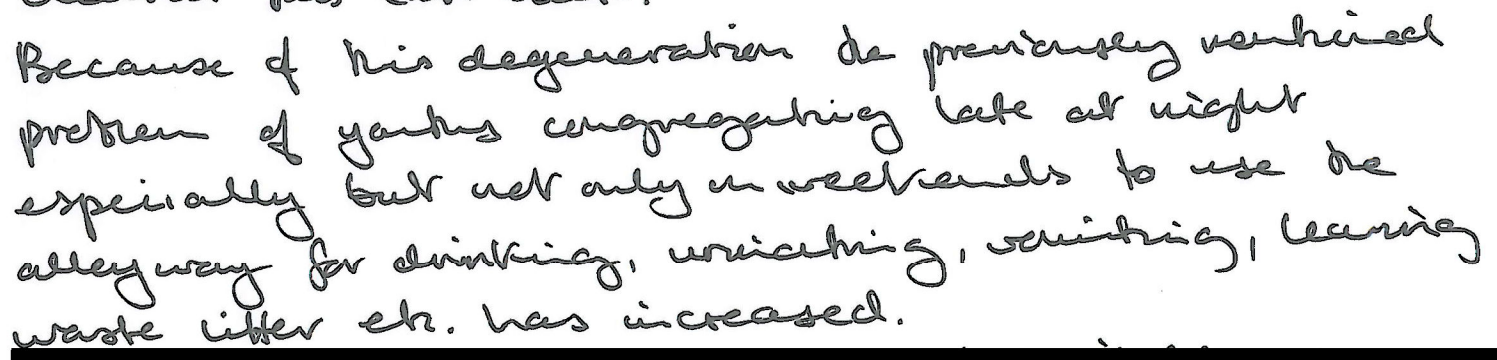 Because of this degeneration the previously mentioned
problem of youths congregating late at night
especially but not only on weekends to use the
alleyway for drinking, urinating, vomiting, leaving
waste litter etc. has increased.